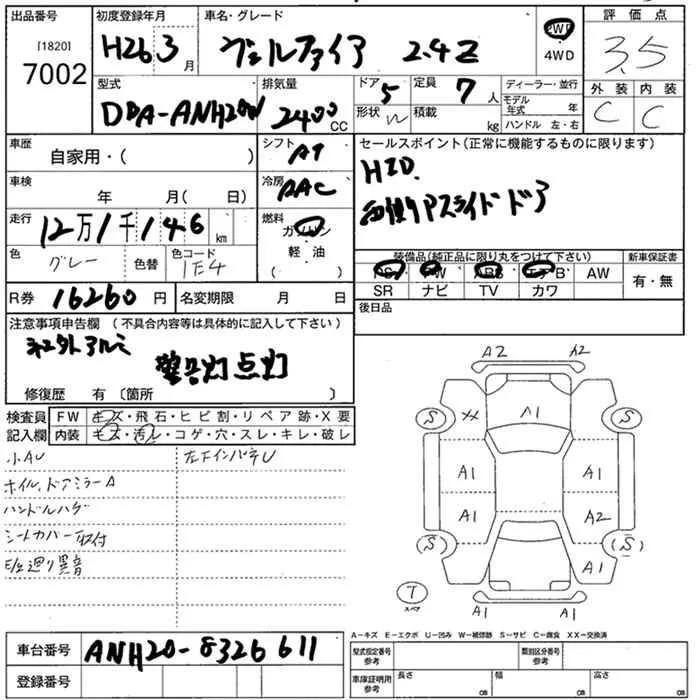 出品番号 初度登録年月 車名・グレード 評価点
[1820] 7002 H26 3月 ヴェルファイア 2.4Z FWD 4WD 3.5
型式 排気量 ドア 5 定員 7人 ディーラー・並行 外装 内装
DBA-ANH20W 2400cc 形状 W 積載 kg モデル年式 年 ハンドル 左・右 C C
車歴 自家用・( ) シフト AT セールスポイント(正常に機能するものに限ります)
車検 年 月(日) 冷房 AAC HID.
走行 12万1千146km 燃料 ガソリン 軽・油 ( ) 両側Pスライドドア
色 グレー 色替 色コード 1E4 装備品(純正品に限り丸をつけて下さい) 新車保証書
PS PW ABS エアB AW 有・無
R券 16260円 名変期限 月 日 SR ナビ TV カワ
後日品
注意事項申告欄(不具合内容等は具体的に記入して下さい)
社外アルミ 警告灯点灯
修復歴 有(箇所 )
検査員記入欄 FW キズ・飛石・ヒビ割・リペア跡・X要
内装 キズ・汚レ・コゲ・穴・スレ・キレ・破レ
小AU 左下インパネU
ホイル、ドアミラーA
ハンドルハゲ
シートカバー取付
E/g廻り異音
A2 A2
S XX A1 S
A1 A1
A1 A2
S A1 (S)
T スペア A1 A1
A-キズ E-エクボ U-凹み W-補修跡 S-サビ C-腐食 XX-交換済
車台番号 ANH20-8326611 型式指定番号 参考 類別区分番号 参考
登録番号 車庫証明用 参考 長さ cm 幅 cm 高さ cm